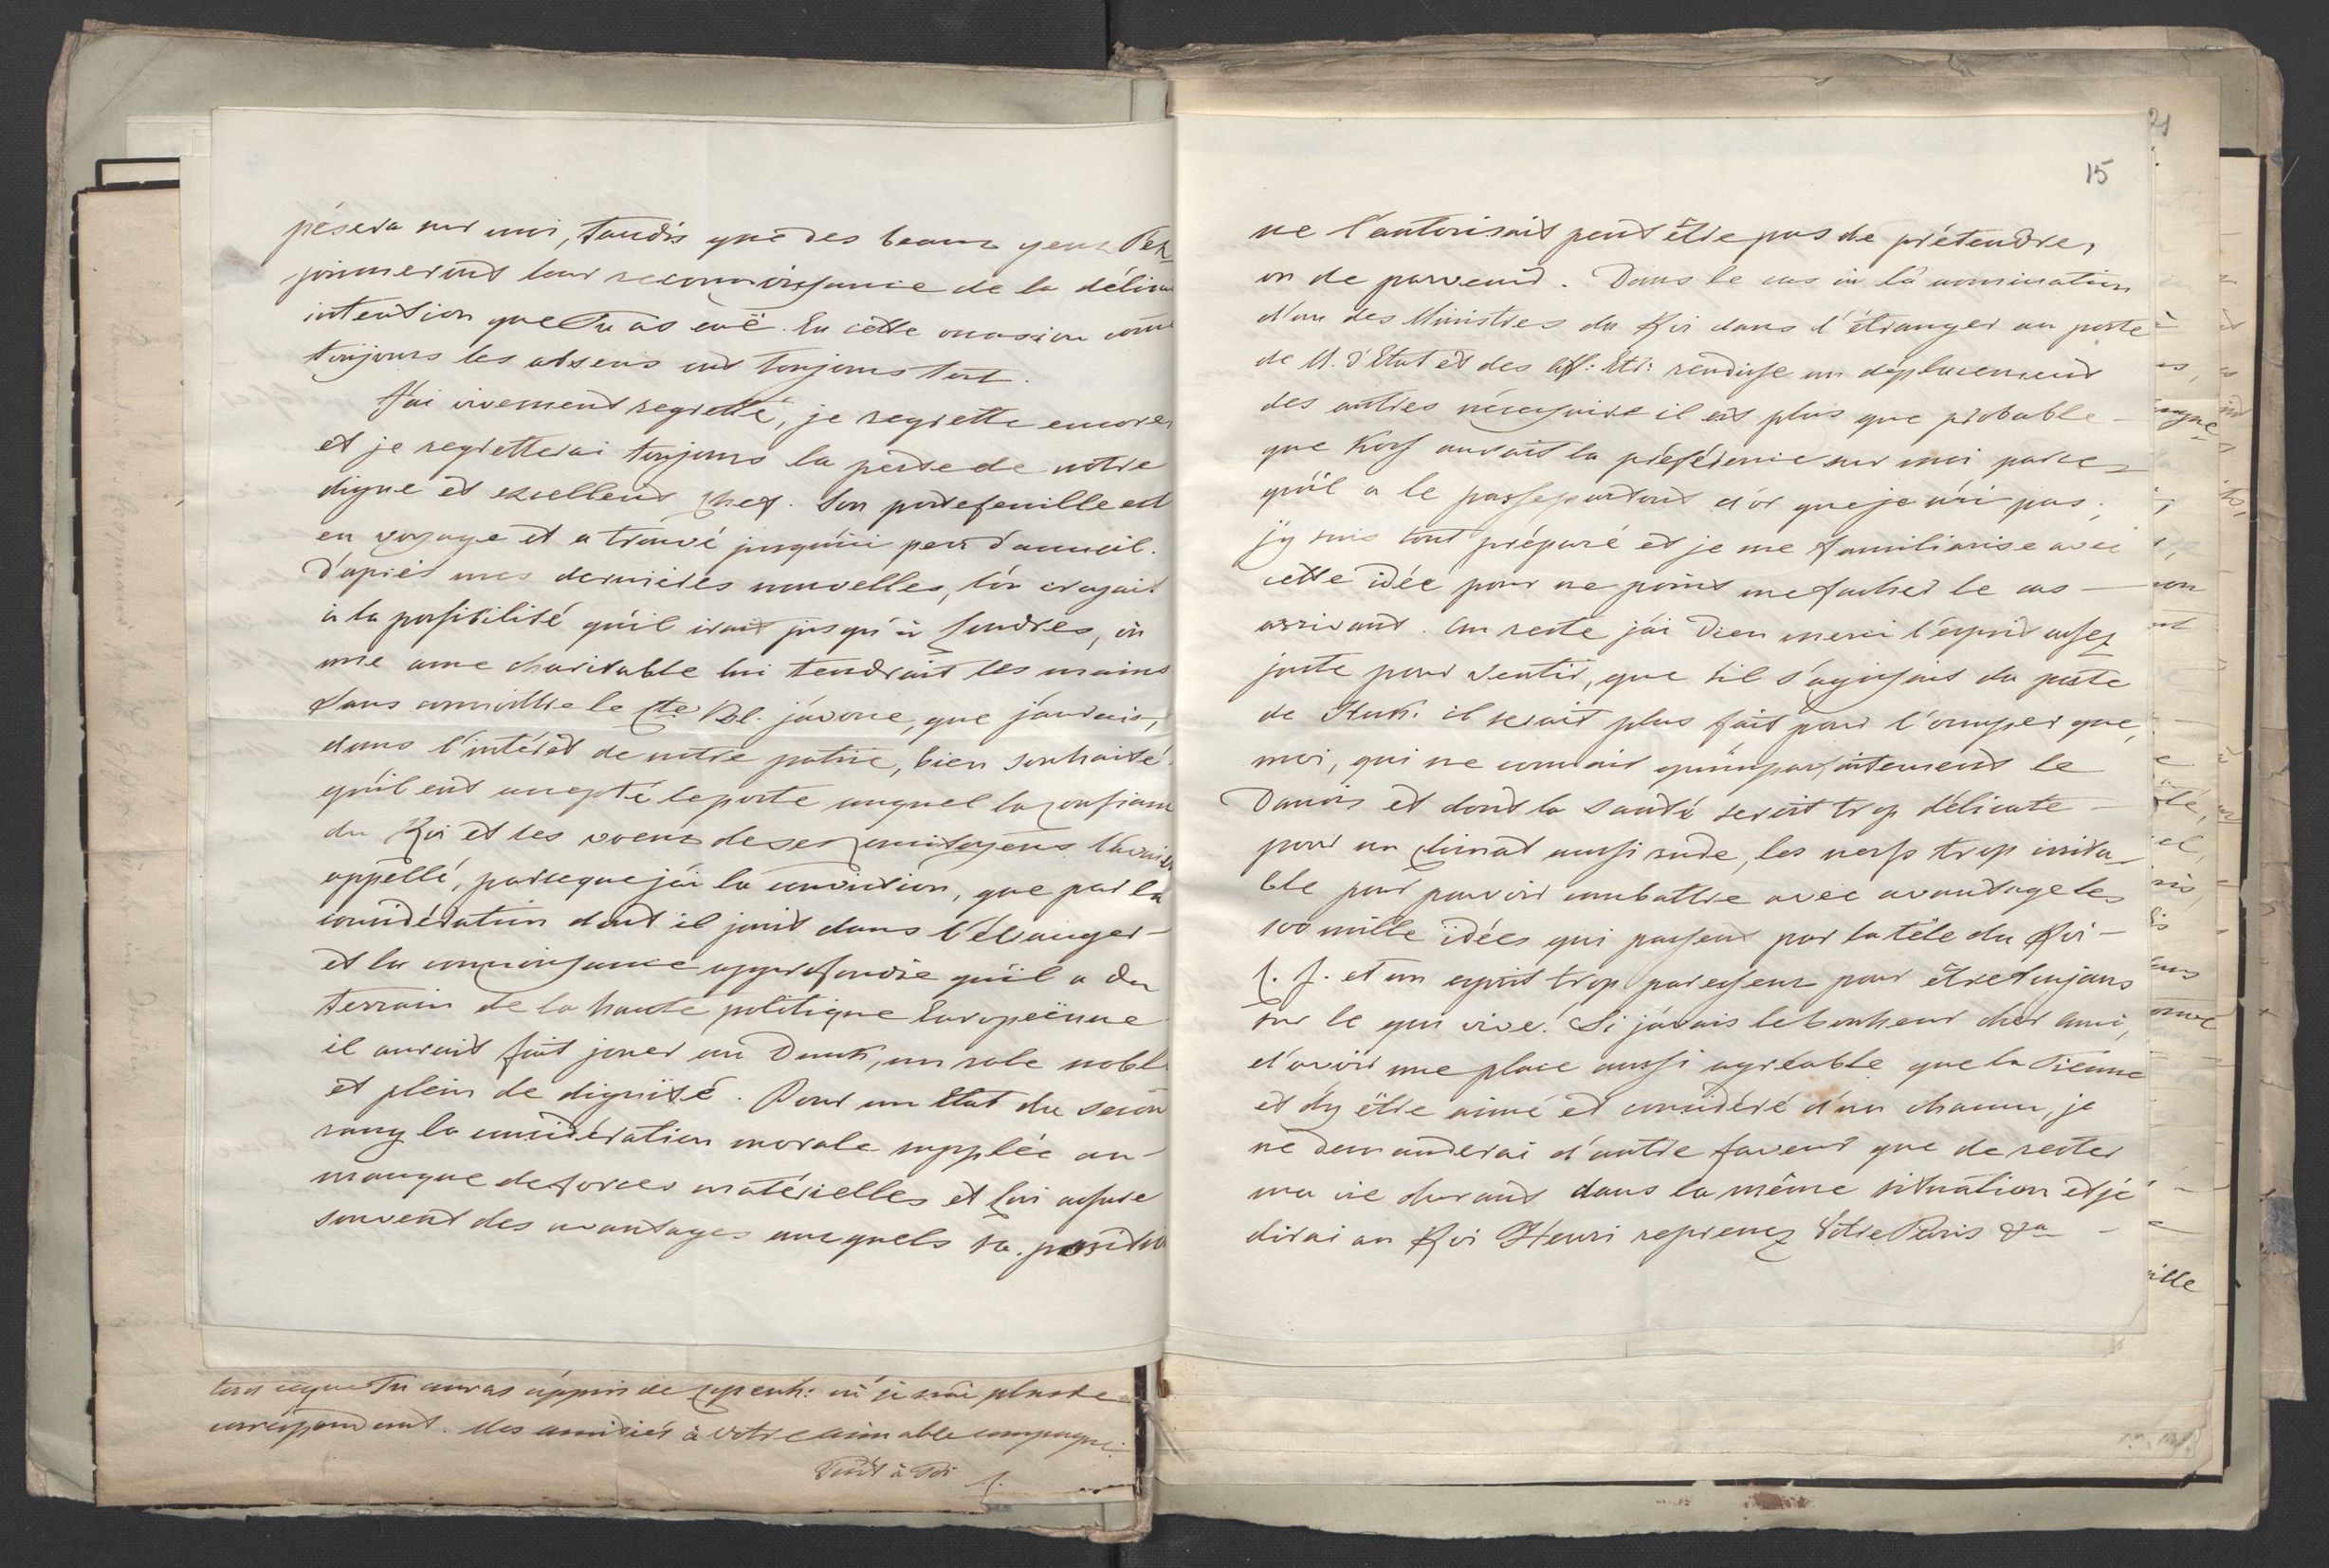 pésera sur moi, tandis que des beaux yeux T'ex-
primeront leur reconnoissance de la délicate
intention que Tu as euë. En cette occasion comme
toujours les absens ont toujours tort.
J'ai vivement regretté, je regrette encore,
et je regretterai toujours la perte de notre
digne et excellent chef. Son portefeuille est
en voyage et a trouvé jusqu'ici peu d'accueil.
D'après mes dernières nouvelles, l'on croyait
à la possibilité qu'il irait jusqu'à Londres, où
une ame charitable lui tendrait les mains
sans connoitre le Cte Bl. j'avoue, que j'aurais,
dans l'intérêt de notre patrie, bien souhaité
qu'il eut accepté le poste auquel la confiance
du Roi et les voeux de ses concitoyens l'avoient
appellé, parceque j'ai la conviction, que par la
considération dont il jouit dans l'étranger
et la connoissance approfondie qu'il a du
terrain de la haute politique Europeënne
il auroit fait jouer au Dank, un role noble
et plein de dignité. Pour un Etat du second
rang la considération morale supplée au
manque de forces matérielles et lui assure
souvent des avantages auxquels sa position
21
15
ne l'autorisait peut être pas de prétendre,
on de parvenir. Dans le cas où la nomination
d'un des Ministres du Roi dans l'étranger au poste
de M. d'Etat et des Aff: Etr: rendisse un déplacement
des autres nécessaire il est plus que probable
que Kosf auroit la préférence sur moi parce-
qu'il a le passepartout d'or que je n'ai pas;
j'y suis tout préparé et je me familiarise avec
cette idée pour ne point me facher le cas
arrivant. Au reste j'ai Dieu merci l'esprit assez
juste pour sentir, que s'il s'agissait du poste
de Stock. il serait plus fait pour l'occuper que
moi, qui ne connais qu'imparfaitement le
Danois et dont la santé seroit trop délicate
pour un climat aussi rude, les nerfs trop irrita-
ble pour pouvoir combattre avec avantage les
100 mille idées qui passent par la tête du Roi
C. J. et un esprit trop paresseux pour être toujours
sur le qui vive! Si j'avais le bonheur cher ami,
d'avoir une place aussi agréable que la Tienne
et d'y être aimé et considéré d'un chacun, je
ne demanderai d'autre faveur que de rester
ma vie durant dans la même situation et je
dirai au Roi Henri reprenez Votre Paris &a
tout ceque Tu auras appris de Copenh: où je n'ai plus de
correspondant. Mes amitiés à votre aimable compagne.
Tout à Toi